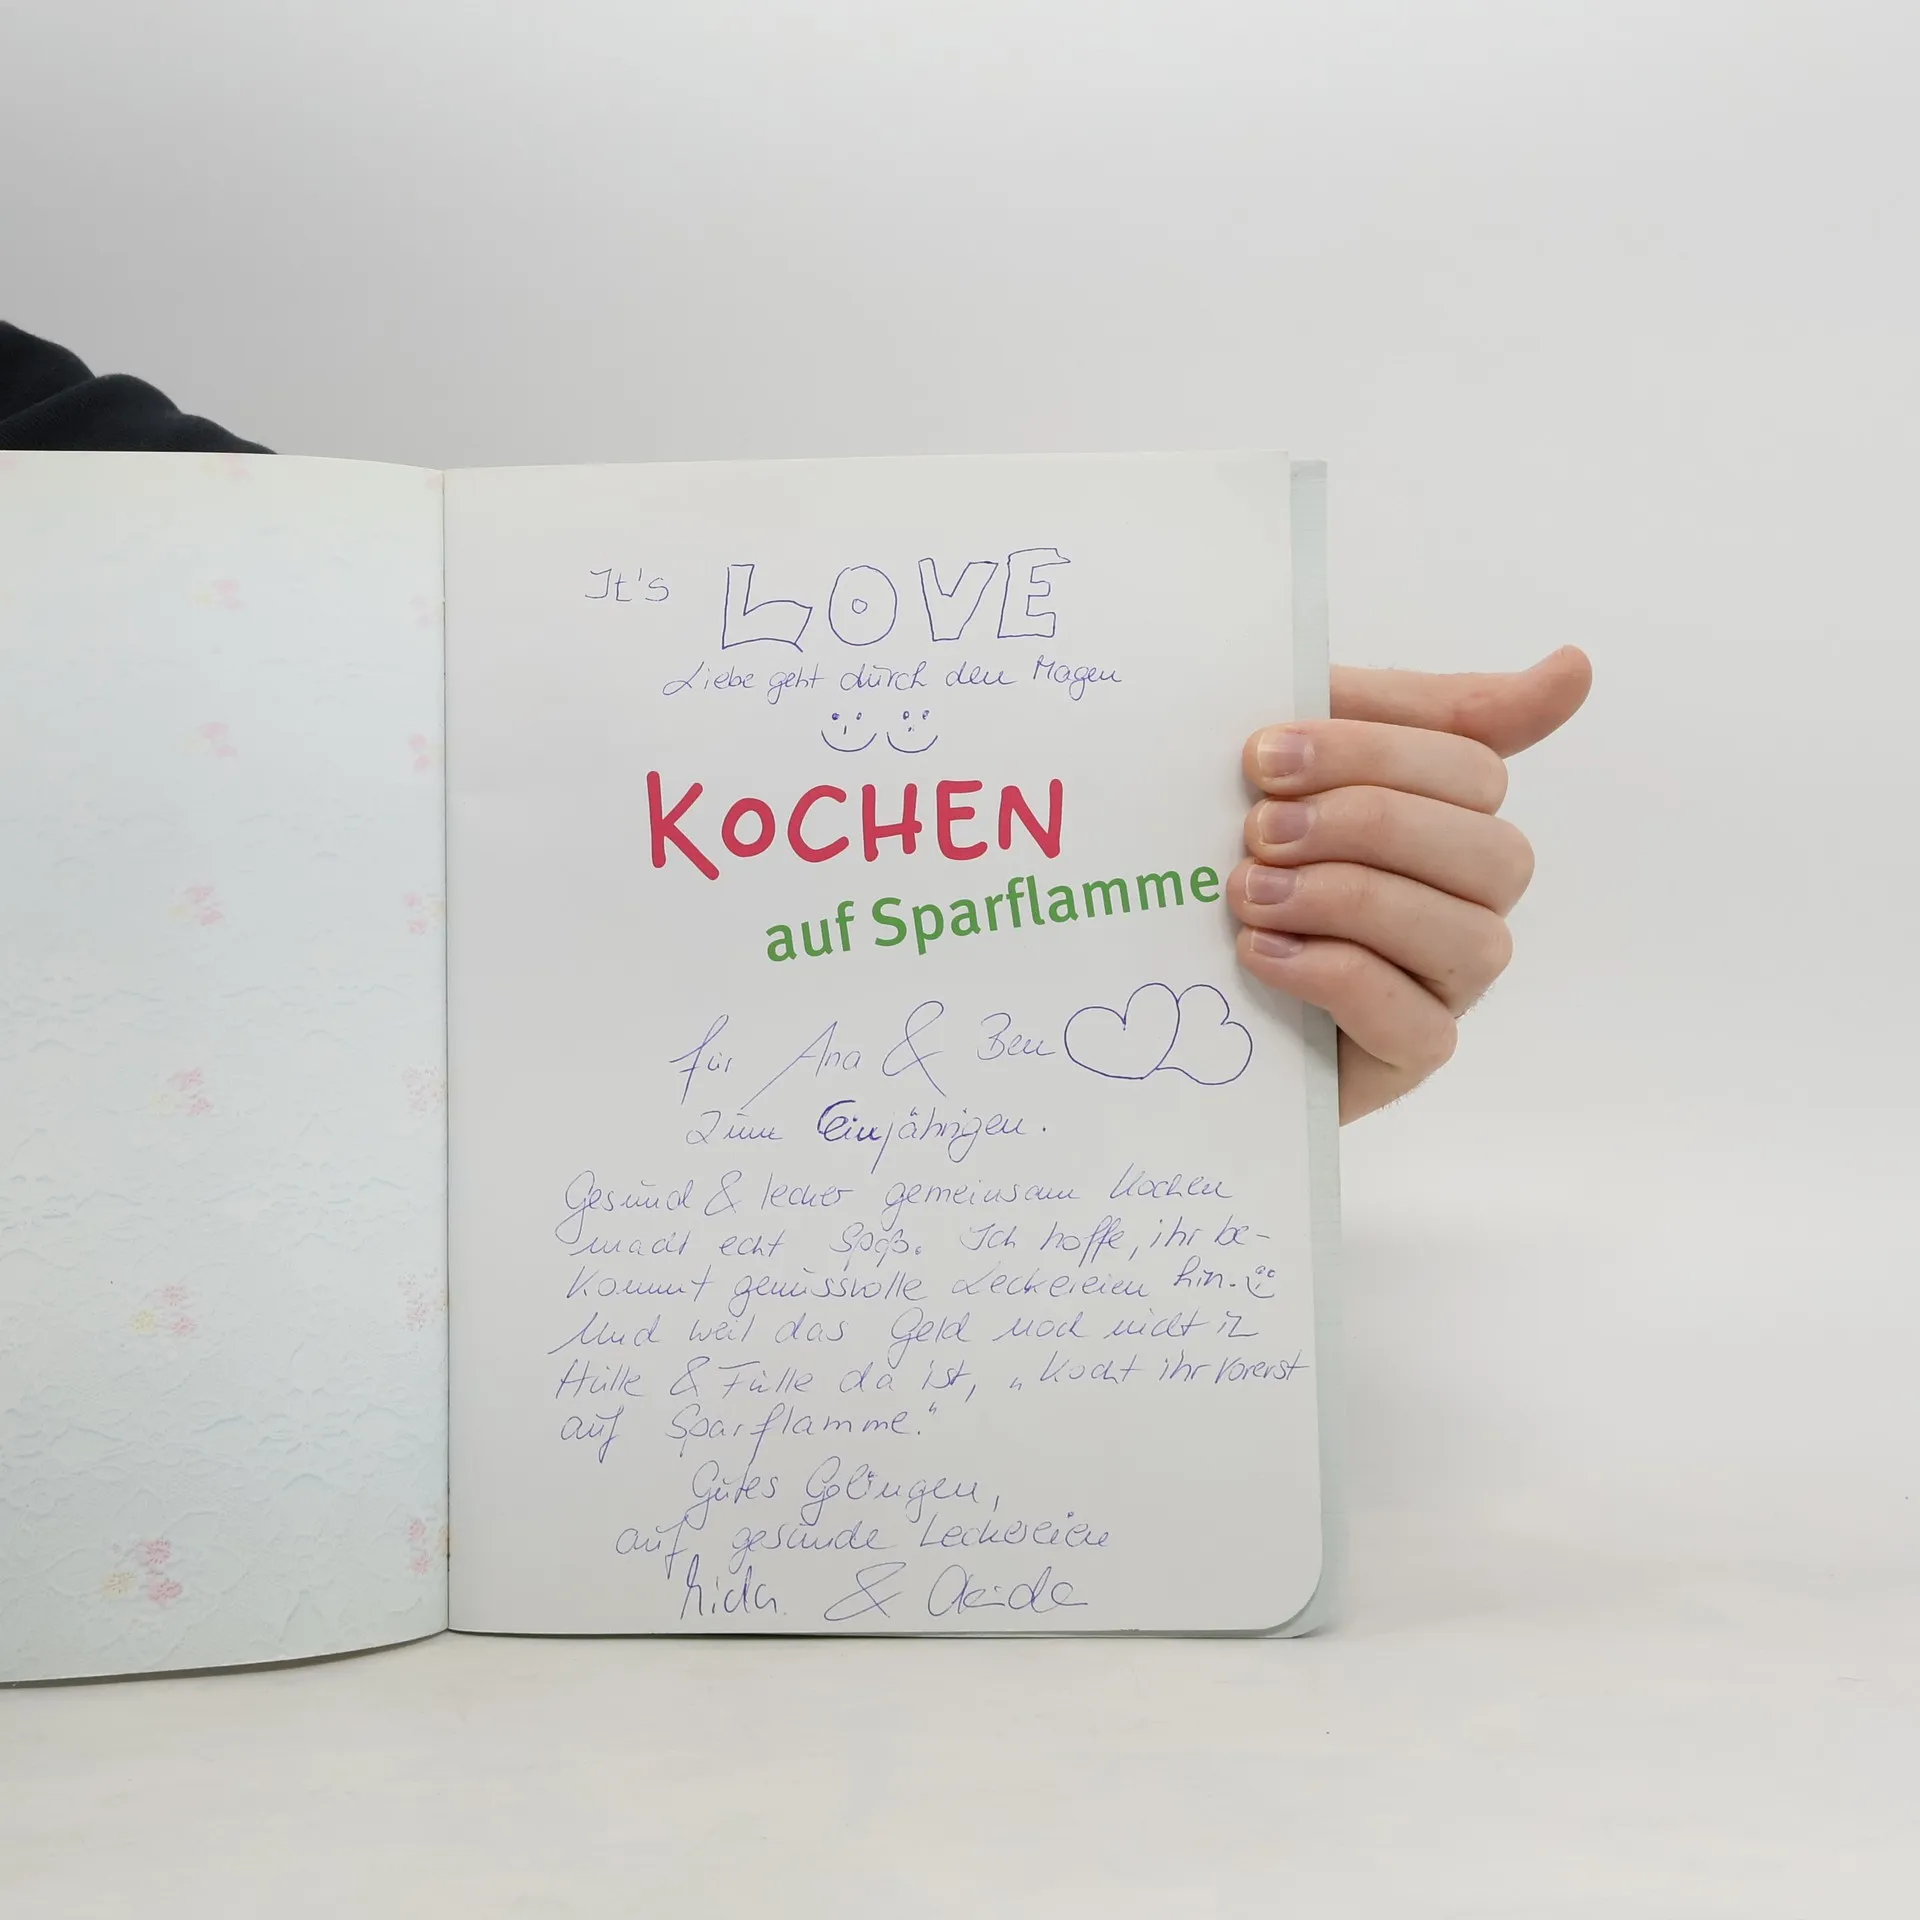 It's LOVE
Liebe geht durch den Magen
KOCHEN
auf Sparflamme
für Ana & Ben
Zum Einjährigen.
Gesund & lecker gemeinsam Kochen
macht echt Spaß. Ich hoffe, ihr be-
kommt genussvolle Leckereien hin.
Und weil das Geld noch nicht in
Hülle & Fülle da ist, „Kocht ihr vorerst
auf Sparflamme."
Gutes Gelingen,
auf gesunde Leckereien
&